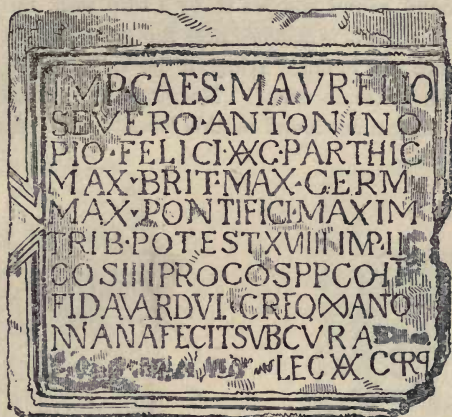 IMP·CAES·MAVRELIO
SEVERO·ANTONINO
PIO·FELICI·AVG·PARTHIC
MAX·BRIT·MAX·GERM
MAX·PONTIFICI·MAXIM
TRIB·POTEST XVIIII IMP·II
COS IIII PROCOS PP COH I
FIDA VARDVL CR EQ ANTO
NINANA FECIT SVB CVRA
LEG AVG PR PR